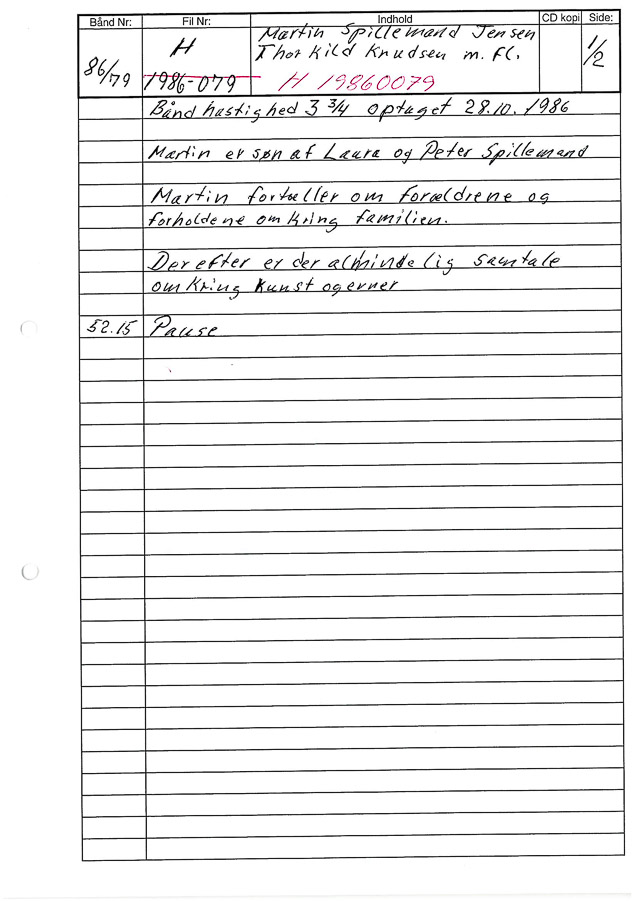 Bånd Nr: Fil Nr: Indhold CD kopi Side:
86/79 H Martin Spillemand Jensen 1/2
Thorkild Knudsen m. fl.
1986-079 H 19860079
Bånd hastighed 3 3/4 optaget 28.10.1986
Martin er søn af Laura og Peter Spillemand
Martin fortæller om forældrene og
forholdene omkring familien.
Derefter er der almindelig samtale
omkring kunst
52.15 Pause